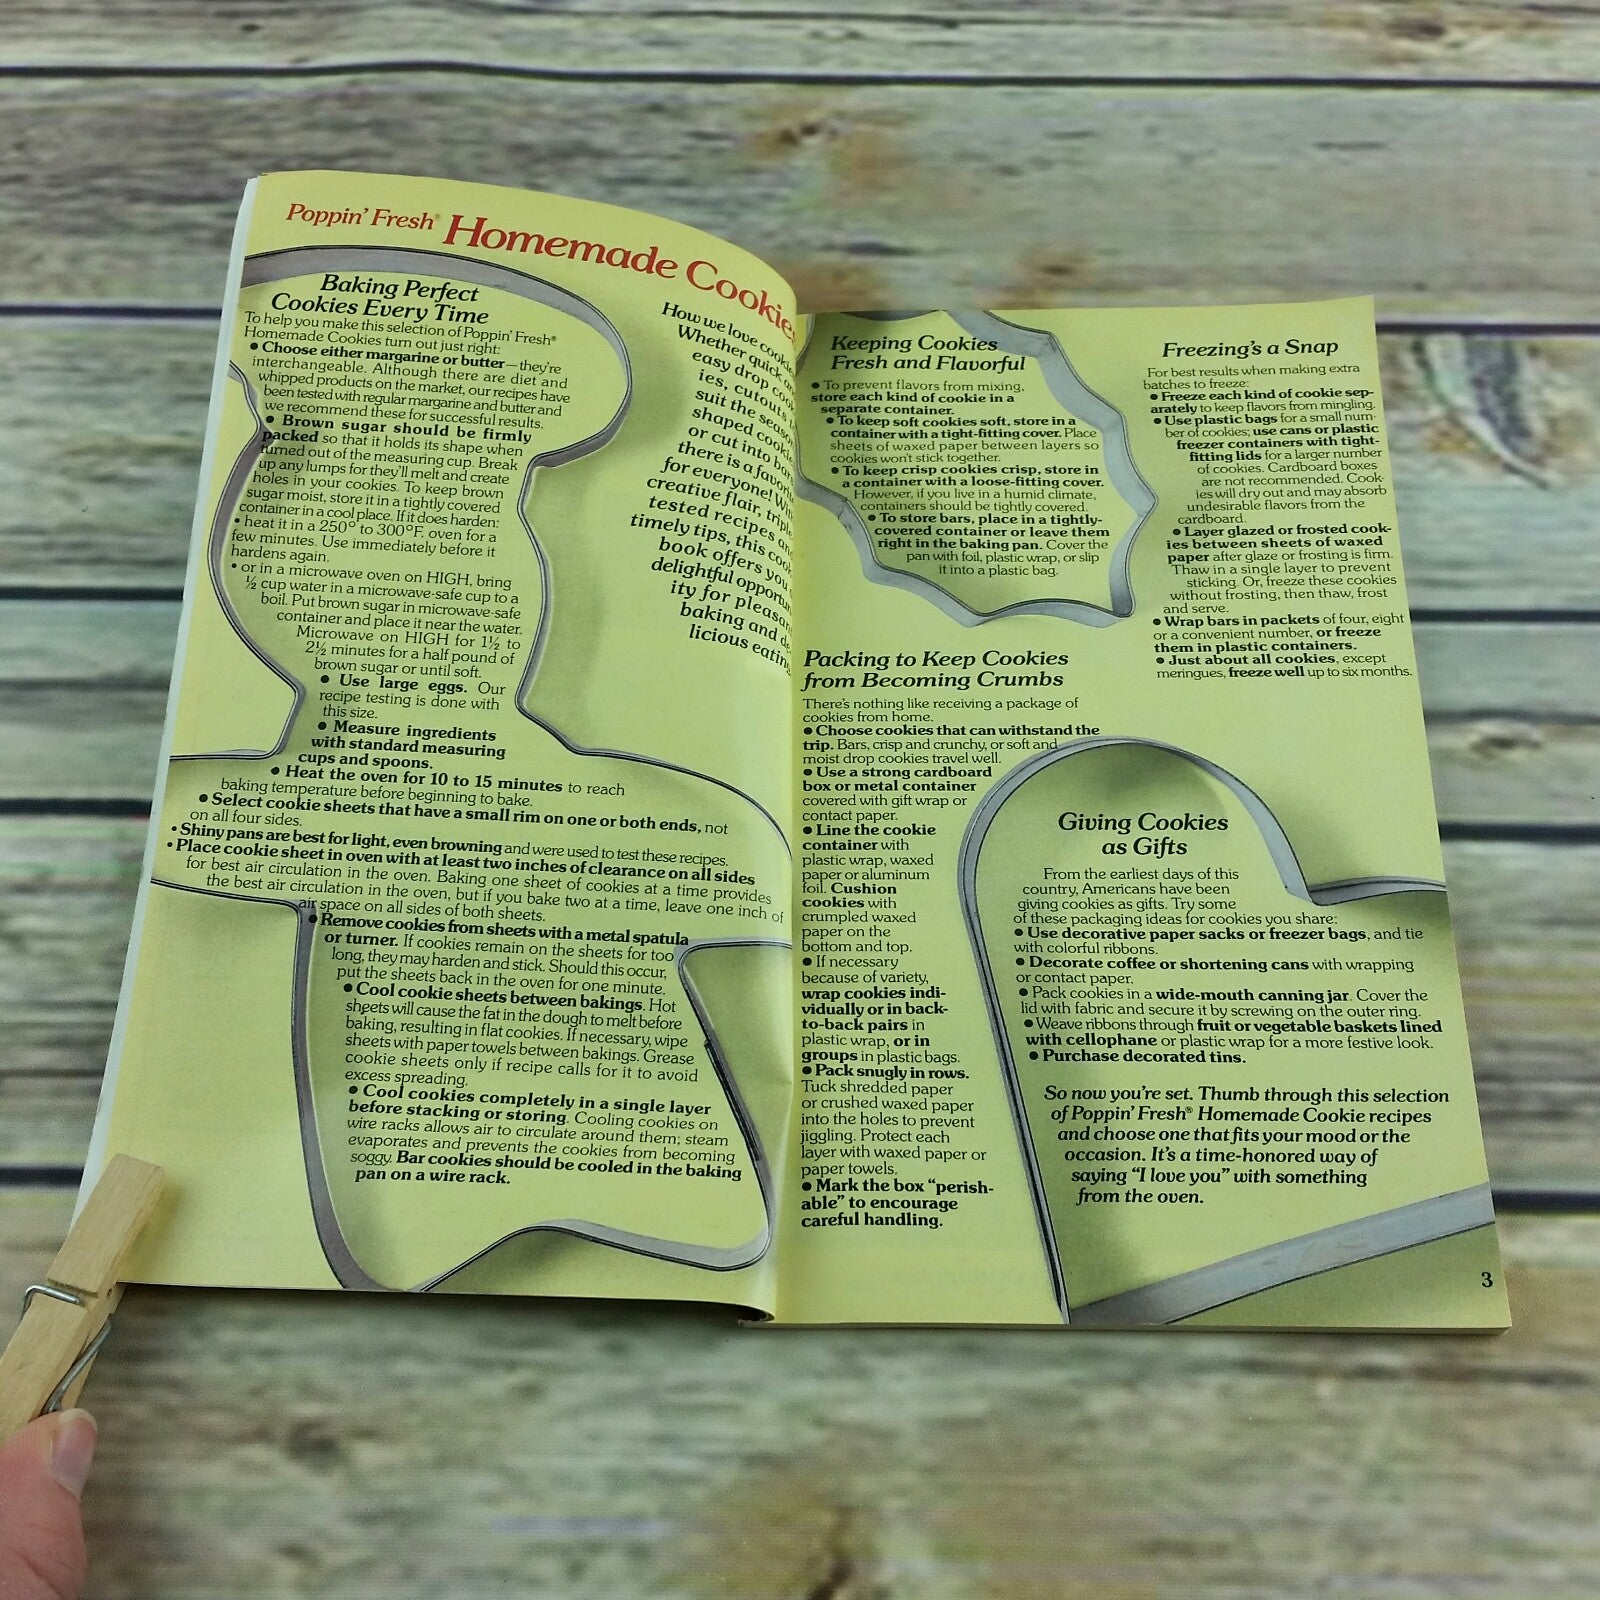 Poppin' Fresh® Homemade Cookies
Baking Perfect
Cookies Every Time
To help you make this selection of Poppin' Fresh®
Homemade Cookies turn out just right:
• Choose either margarine or butter—they're
interchangeable. Although there are diet and
whipped products on the market, our recipes have
been tested with regular margarine and butter and
we recommend these for successful results.
• Brown sugar should be firmly
packed so that it holds its shape when
turned out of the measuring cup. Break
up any lumps for they'll melt and create
holes in your cookies. To keep brown
sugar moist, store it in a tightly covered
container in a cool place. If it does harden:
• heat it in a 250° to 300°F. oven for a
few minutes. Use immediately before it
hardens again.
• or in a microwave oven on HIGH, bring
½ cup water in a microwave-safe cup to a
boil. Put brown sugar in microwave-safe
container and place it near the water.
Microwave on HIGH for 1½ to
2½ minutes for a half pound of
brown sugar or until soft.
• Use large eggs. Our
recipe testing is done with
this size.
• Measure ingredients
with standard measuring
cups and spoons.
• Heat the oven for 10 to 15 minutes to reach
baking temperature before beginning to bake.
• Select cookie sheets that have a small rim on one or both ends, not
on all four sides.
• Shiny pans are best for light, even browning and were used to test these recipes.
• Place cookie sheet in oven with at least two inches of clearance on all sides
for best air circulation in the oven. Baking one sheet of cookies at a time provides
the best air circulation in the oven, but if you bake two at a time, leave one inch of
air space on all sides of both sheets.
• Remove cookies from sheets with a metal spatula
or turner. If cookies remain on the sheets for too
long, they may harden and stick. Should this occur,
put the sheets back in the oven for one minute.
• Cool cookie sheets between bakings. Hot
sheets will cause the fat in the dough to melt before
baking, resulting in flat cookies. If necessary, wipe
sheets with paper towels between bakings. Grease
cookie sheets only if recipe calls for it to avoid
excess spreading.
• Cool cookies completely in a single layer
before stacking or storing. Cooling cookies on
wire racks allows air to circulate around them; steam
evaporates and prevents the cookies from becoming
soggy. Bar cookies should be cooled in the baking
pan on a wire rack.
How we love
Whether quick
easy drop
ies, cutouts
suit the
shaped
or cut into
there is a
for everyone!
creative flair,
tested recipes
timely tips, this
book offers you
delightful
ity for
baking and
licious eating
Keeping Cookies
Fresh and Flavorful
• To prevent flavors from mixing,
store each kind of cookie in a
separate container.
• To keep soft cookies soft, store in a
container with a tight-fitting cover. Place
sheets of waxed paper between layers so
cookies won't stick together.
• To keep crisp cookies crisp, store in
a container with a loose-fitting cover.
However, if you live in a humid climate,
containers should be tightly covered.
• To store bars, place in a tightly-
covered container or leave them
right in the baking pan. Cover the
pan with foil, plastic wrap, or slip
it into a plastic bag.
Freezing's a Snap
For best results when making extra
batches to freeze:
• Freeze each kind of cookie sep-
arately to keep flavors from mingling.
• Use plastic bags for a small num-
ber of cookies; use cans or plastic
freezer containers with tight-
fitting lids for a larger number
of cookies. Cardboard boxes
are not recommended. Cook-
ies will dry out and may absorb
undesirable flavors from the
cardboard.
• Layer glazed or frosted cook-
ies between sheets of waxed
paper after glaze or frosting is firm.
Thaw in a single layer to prevent
sticking. Or, freeze these cookies
without frosting, then thaw, frost
and serve.
• Wrap bars in packets of four, eight
or a convenient number, or freeze
them in plastic containers.
• Just about all cookies, except
meringues, freeze well up to six months.
Packing to Keep Cookies
from Becoming Crumbs
There's nothing like receiving a package of
cookies from home.
• Choose cookies that can withstand the
trip. Bars, crisp and crunchy, or soft and
moist drop cookies travel well.
• Use a strong cardboard
box or metal container
covered with gift wrap or
contact paper.
• Line the cookie
container with
plastic wrap, waxed
paper or aluminum
foil. Cushion
cookies with
crumpled waxed
paper on the
bottom and top.
• If necessary
because of variety,
wrap cookies indi-
vidually or in back-
to-back pairs in
plastic wrap, or in
groups in plastic bags.
• Pack snugly in rows.
Tuck shredded paper
or crushed waxed paper
into the holes to prevent
jiggling. Protect each
layer with waxed paper or
paper towels.
• Mark the box "perish-
able" to encourage
careful handling.
Giving Cookies
as Gifts
From the earliest days of this
country, Americans have been
giving cookies as gifts. Try some
of these packaging ideas for cookies you share:
• Use decorative paper sacks or freezer bags, and tie
with colorful ribbons.
• Decorate coffee or shortening cans with wrapping
or contact paper.
• Pack cookies in a wide-mouth canning jar. Cover the
lid with fabric and secure it by screwing on the outer ring.
• Weave ribbons through fruit or vegetable baskets lined
with cellophane or plastic wrap for a more festive look.
• Purchase decorated tins.
So now you're set. Thumb through this selection
of Poppin' Fresh® Homemade Cookie recipes
and choose one that fits your mood or the
occasion. It's a time-honored way of
saying "I love you" with something
from the oven.
3